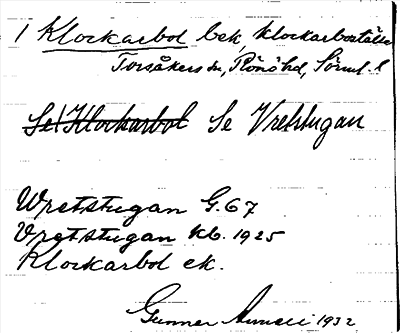 1 Klockarbol bek, klockarboställe
Torsåkers sn, Rönö hd, Sörml. l
Se Klockarbol Se Vretstugan
Wretstugan G. 67
Vretstugan kb. 1925
Klockarbol ek.
Gunnar 1932